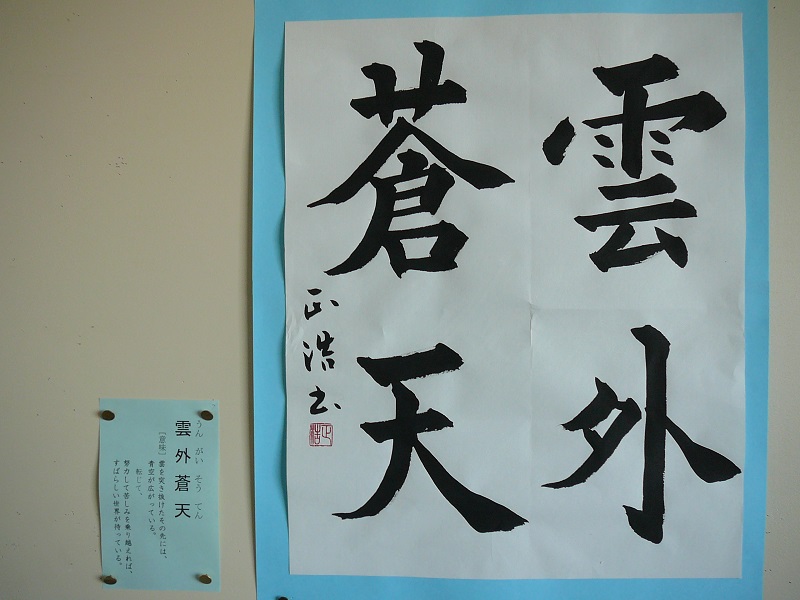 雲外
蒼天
正浩書
正浩
雲外蒼天
うん がい そう てん
[意味]雲を突き抜けたその先には、
青空が広がっている。
転じて、
努力して苦しみを乗り越えれば、
すばらしい世界が待っている。